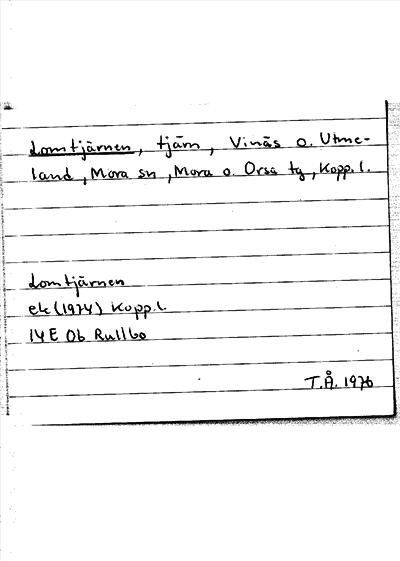 Lomtjärnen, tjärn, Vinäs o. Utme-
land, Mora sn, Mora o. Orsa tg, Kopp. l.
Lomtjärnen
ek (1974) Kopp. l.
14E 0b Rullbo
T.Å. 1976